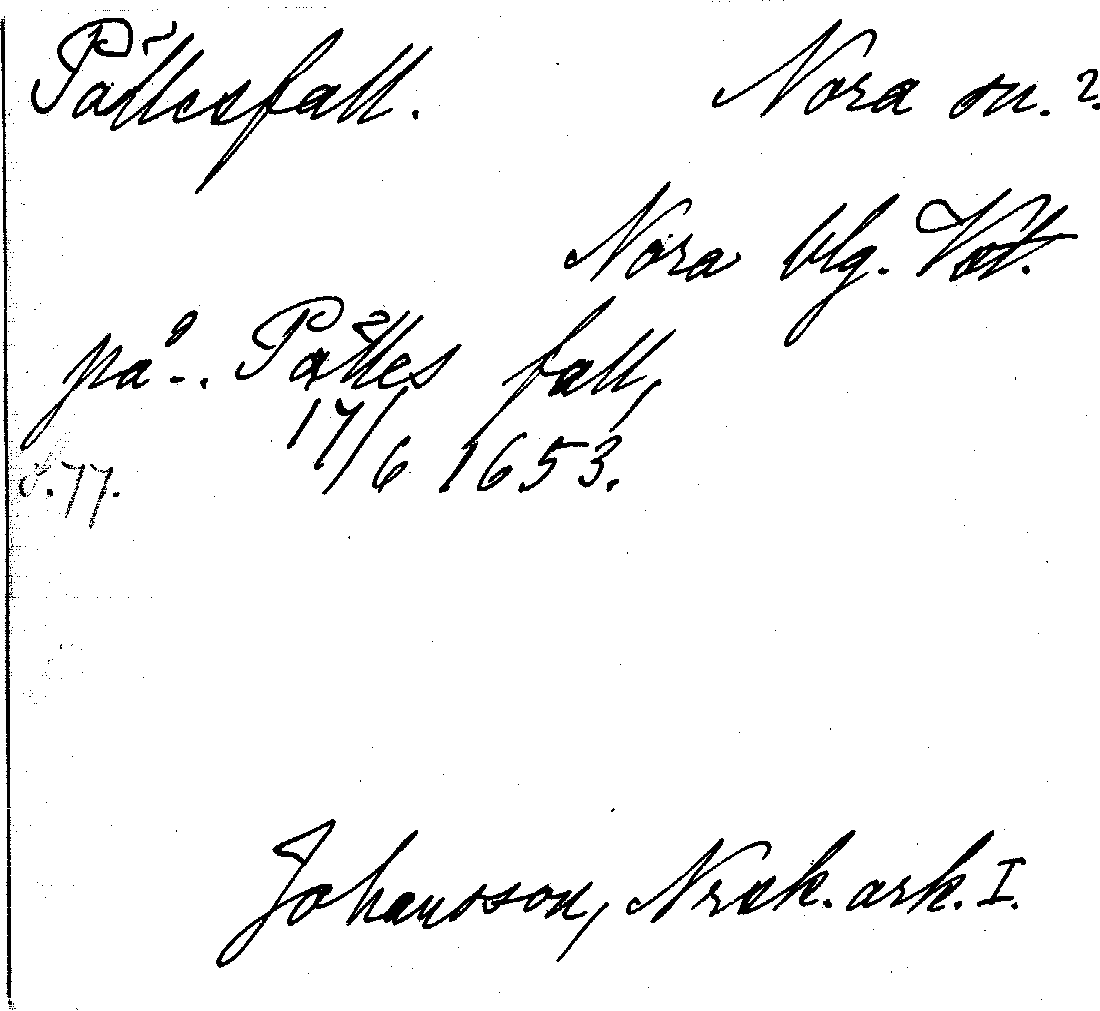 Påttesfall. Nora sn. ?
Nora blg. Vst.
på -. Påttes fall,
17/6 1653.
s. 77.
Johansson, Nrck. ark. I.